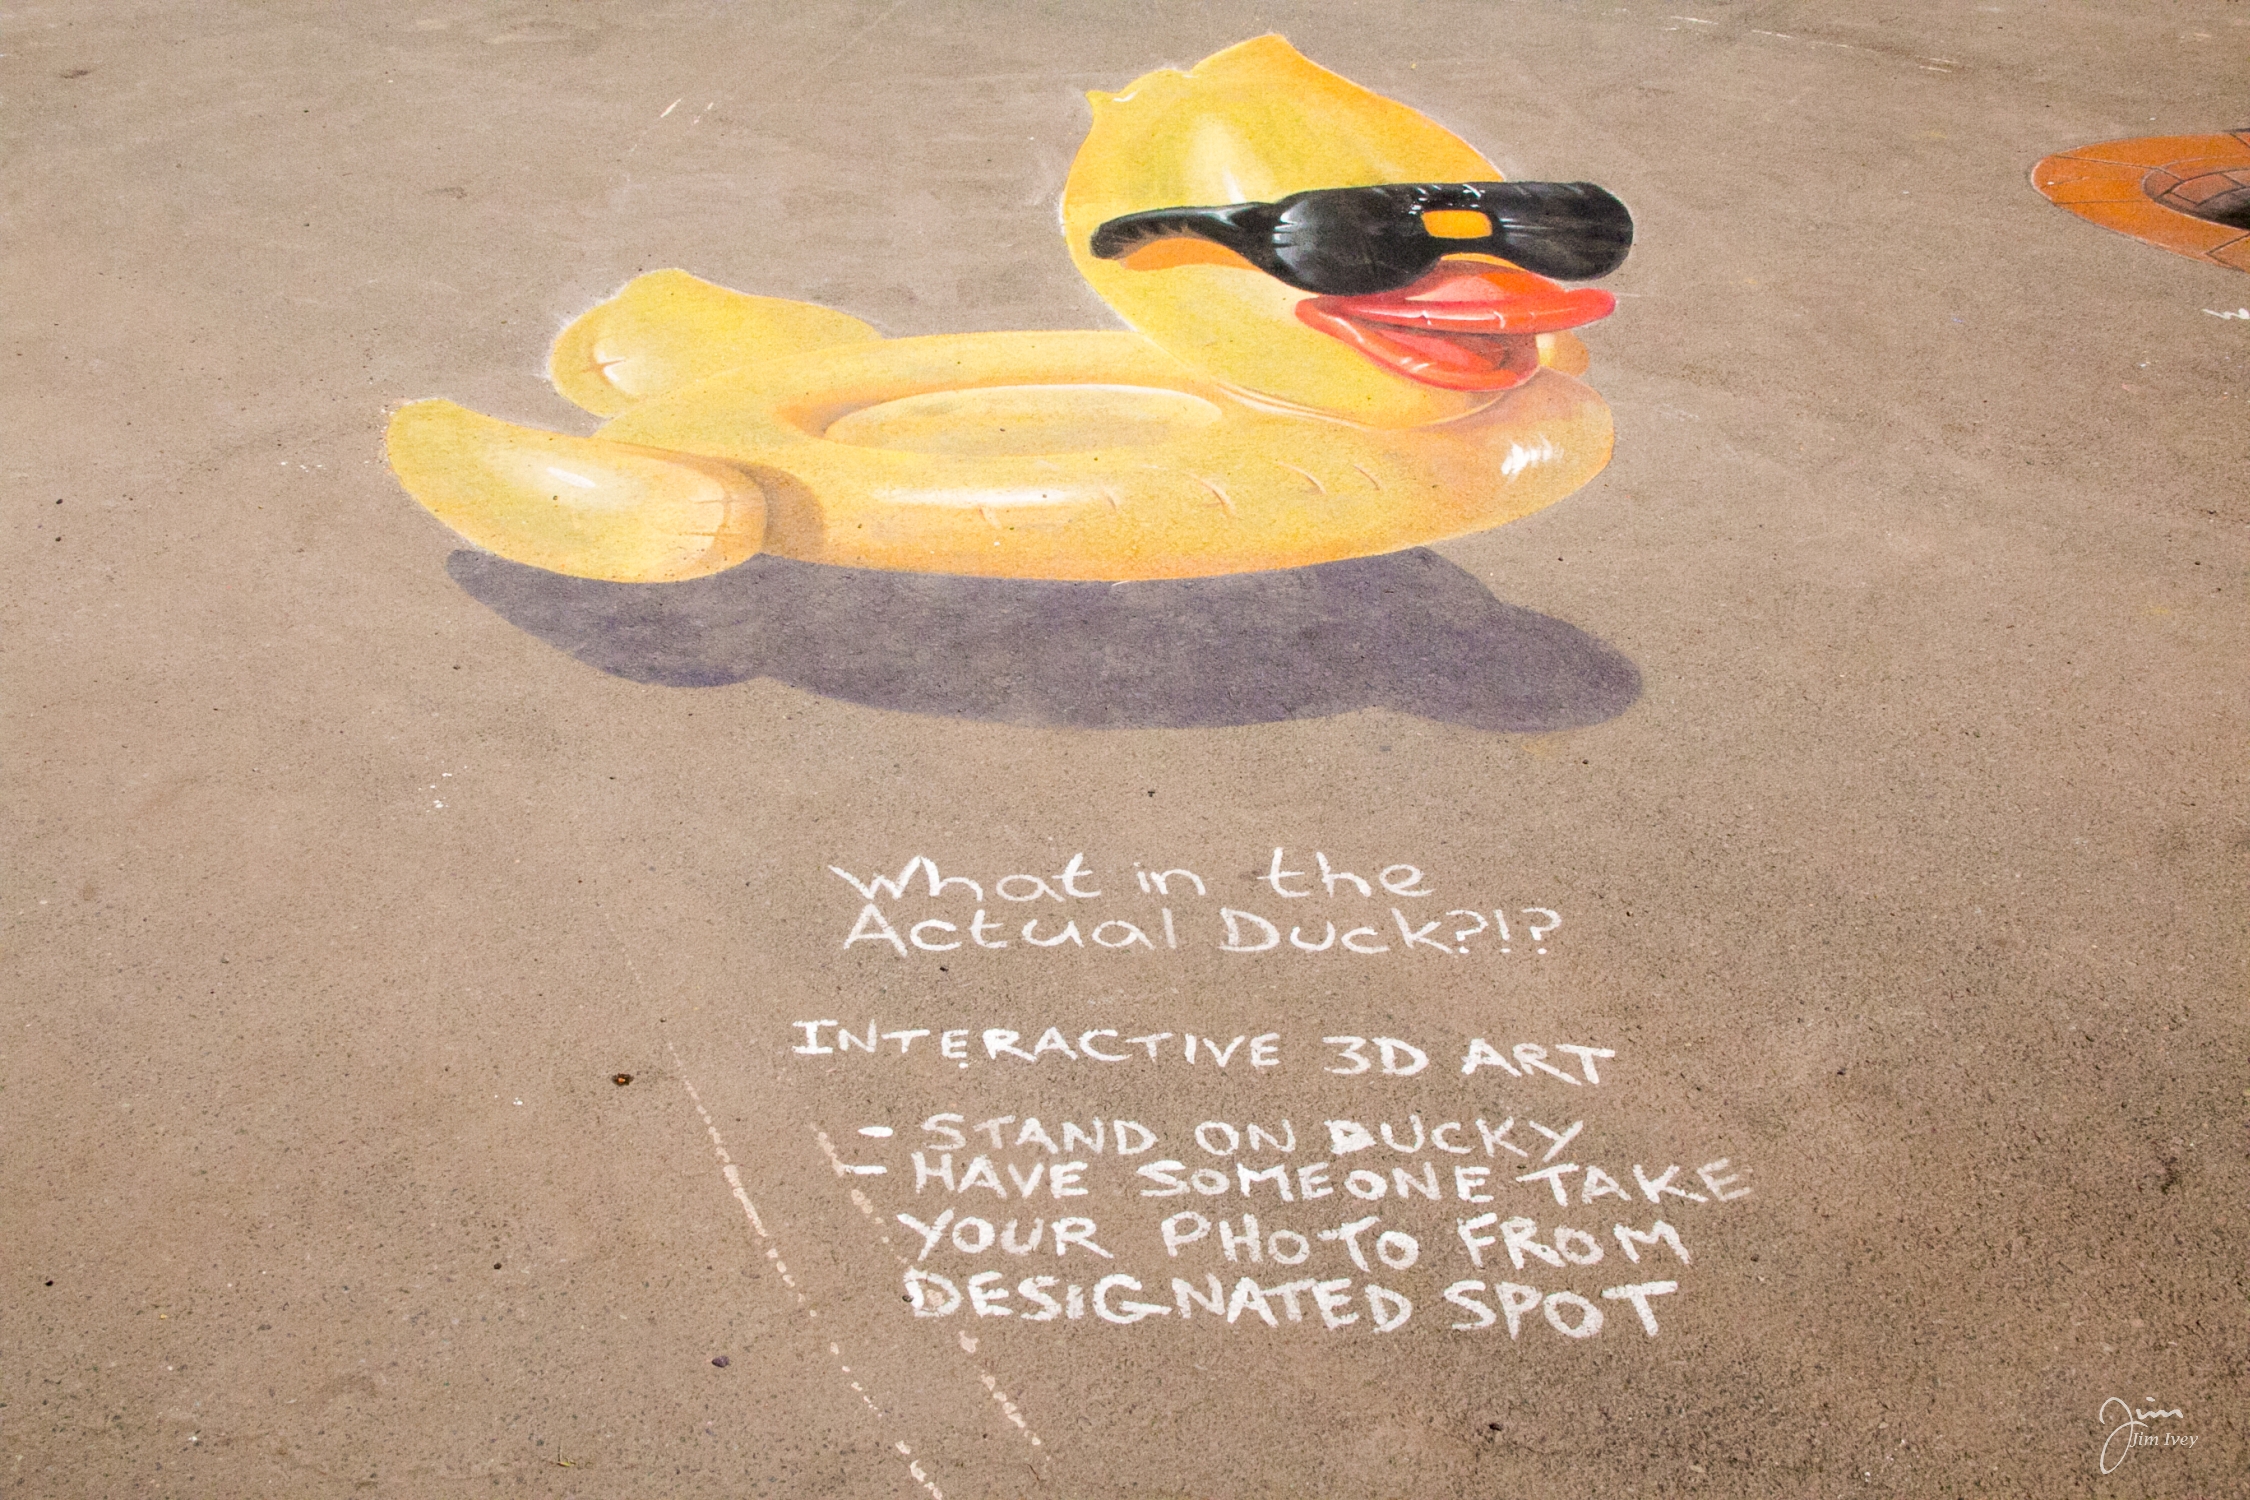 What in the
Actual Duck?!?
INTERACTIVE 3D ART
- STAND ON DUCKY
- HAVE SOMEONE TAKE
YOUR PHOTO FROM
DESIGNATED SPOT
Jim
Jim Ivey